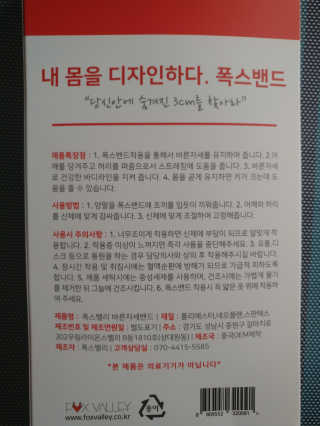 내 몸을 디자인하다. 폭스밴드
"당신안에 숨겨진 3cm를 찾아라"
제품특장점 : 1. 폭스밴드착용을 통해서 바른자세를 유지하며 줍니다. 2.어
깨를 당겨주고 허리를 펴줌으로서 스트레칭에 도움을 줍니다. 3. 바른자세
로 건강한 바디라인을 지켜 줍니다. 4. 몸을 곧게 유지하면 키가 크는데 도
움을 줄 수 있습니다.
사용방법 : 1. 양팔을 폭스밴드에 조끼를 입듯이 끼워줍니다. 2. 어깨와 허리
를 신체에 맞게 감싸줍니다. 3. 신체에 맞게 조절하여 고정해줍니다.
사용시 주의사항 : 1. 너무조이게 착용하면 신체에 부담이 되므로 알맞게 착
용합니다. 2. 착용중 이상이 느껴지면 즉각 사용을 중단해주세요. 3. 요통,디
스크 등으로 통원을 하는 경우 담당의사와 상의 후 착용해주시길 바랍니다.
4. 장시간 착용 및 취침시에는 혈액순환에 방해가 되므로 가급적 피하도록
합니다. 5. 제품 세탁시에는 중성세제를 사용하며, 건조시에는 가볍게 물기
를 제거한 뒤 그늘에 건조시킵니다. 6. 폭스밴드 착용시 꼭 얇은 옷 위에 착용하
여 주세요.
제품명 : 폭스밸리 바른자세밴드 | 재질 : 폴리에스터,네오플랜,스판덱스
제조번호 및 제조연월일 : 별도표기 | 주소 : 경기도 성남시 중원구 갈마치로
202우림라이온스밸리 B동1810호(상대원동) | 제조국 : 중국OEM제작
제조자 : 폭스밸리 | 고객상담실 : 070-4415-5585
"본 제품은 의료기기가 아닙니다"
FOX VALLEY
www.foxvalley.co.kr
종이